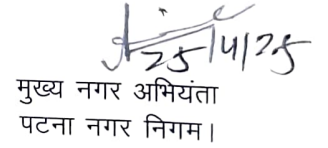 25/4/25
मुख्य नगर अभियंता
पटना नगर निगम।